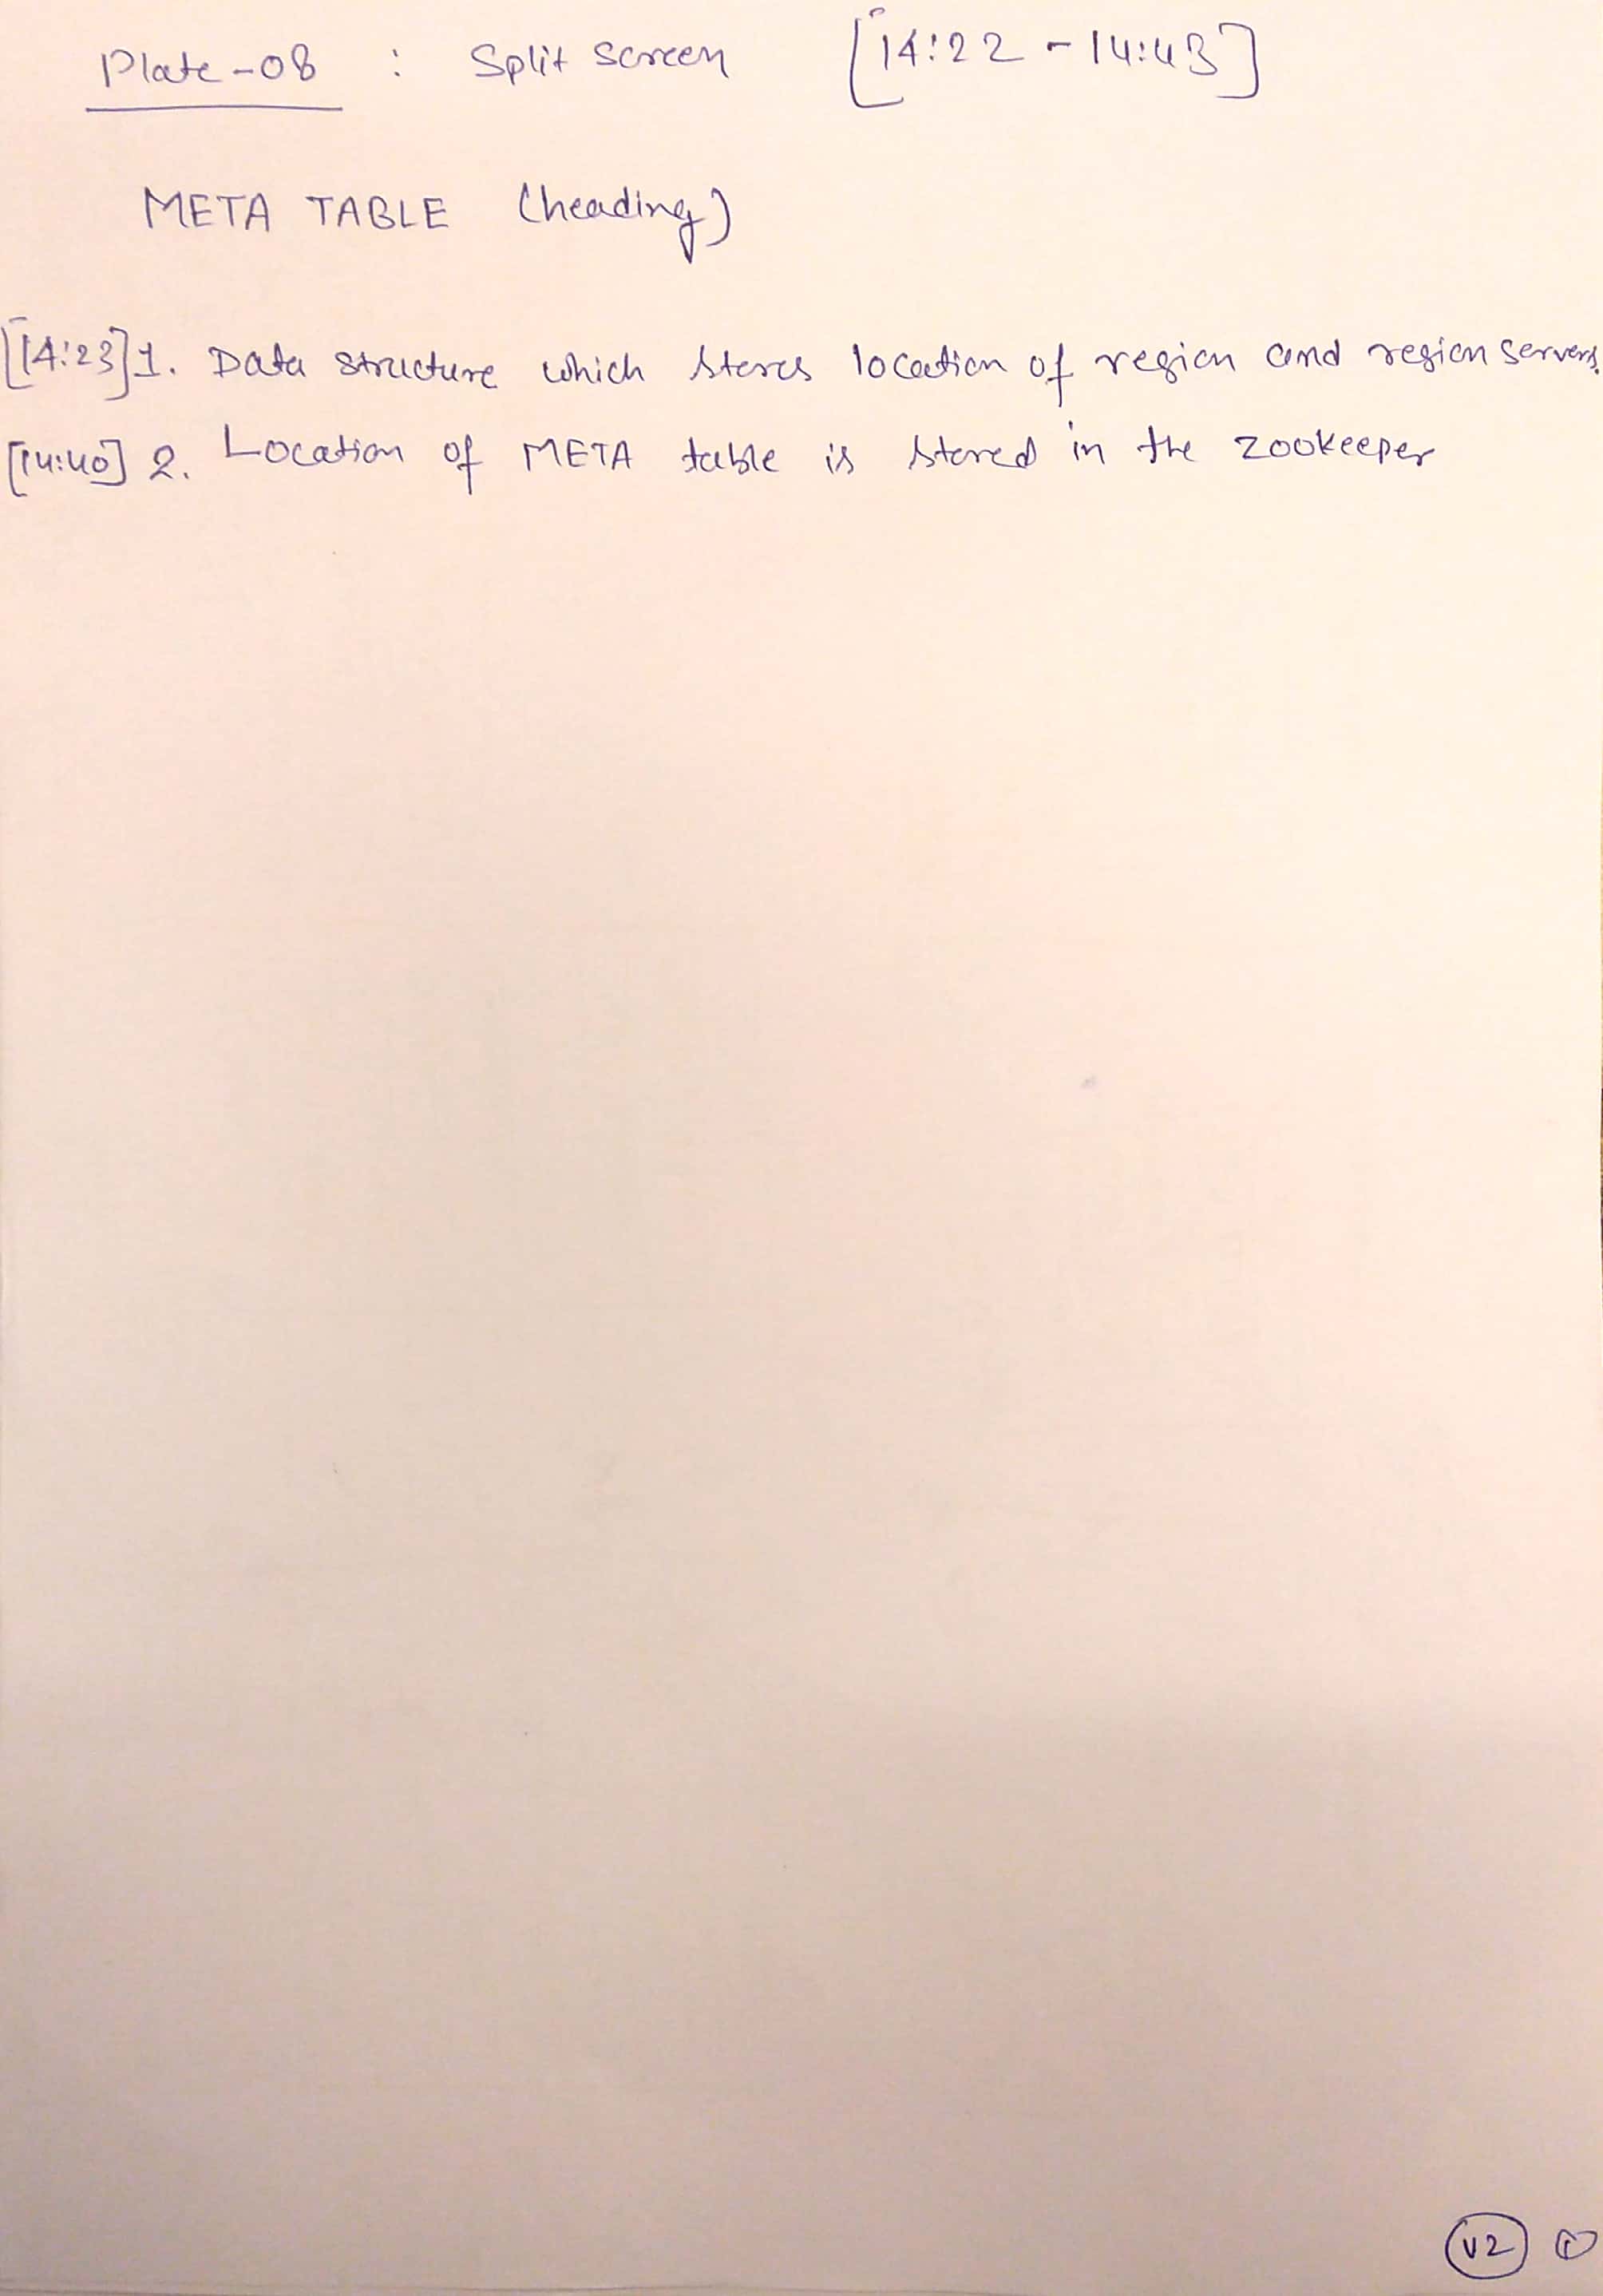 Plate-08 : Split screen [14:22 - 14:43]
META TABLE (heading)
[14:23] 1. Data structure which stores location of region and region servers.
[14:40] 2. Location of META table is stored in the zookeeper
V2